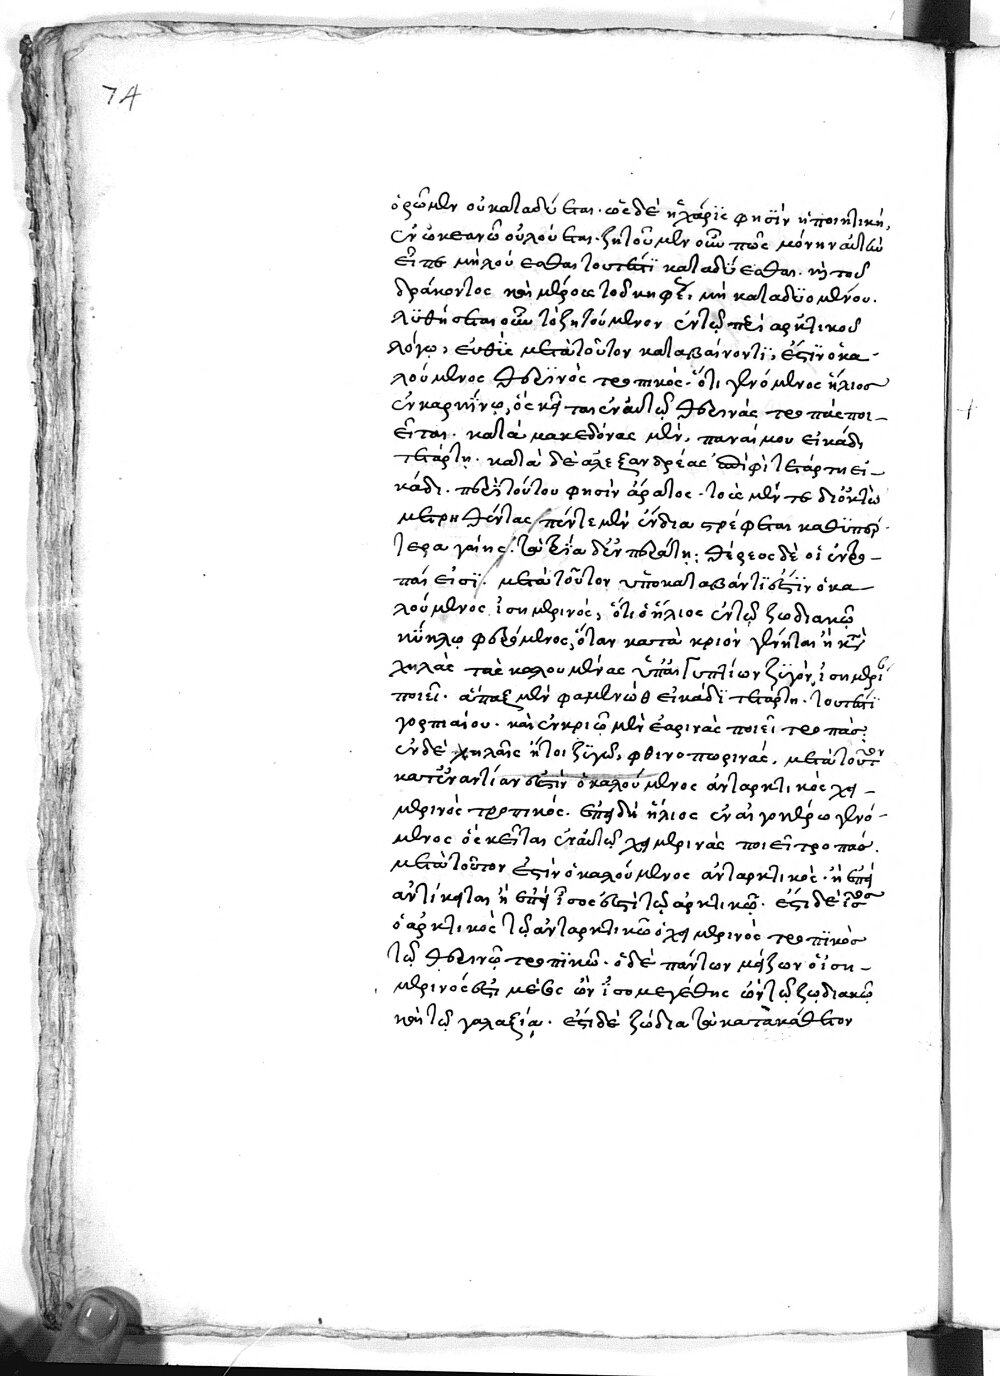 74
ὁρῶμεν οὐ καταδύεται. ὡς δὲ ἡ χάρις φησὶν ἡ ποιητική,
ἐν ὠκεανῶ οὐ λούεται. ζητοῦμεν οὖν πῶς μόνην αὐτὴν
εἶπε μὴ λούεσθαι τουτέστι καταδύεσθαι. καὶ τοῦ
δράκοντος καὶ μέρος τοῦ κηφέως μὴ καταδυομένου.
λυθήσεται οὖν τὸ ζητούμενον ἐν τῷ περὶ ἀρκτικοῦ
λόγῳ, εὐθὺς μετὰ τοῦτον καταβαίνοντι, ἐστὶν ὁ κα-
λούμενος θερινὸς τροπικός. ὅτι γενόμενος ἥλιος
ἐν καρκίνῳ, ὃς κεῖται ἐν αὐτῷ θερινὰς τροπὰς ποι-
εῖται. κατὰ μακεδόνας μὲν, παναίμου εἰκάδι
τετάρτῃ. κατὰ δὲ ἀλεξανδρέας ἐπιφὶ τετάρτη εἰ-
κάδι. περὶ τούτου φησὶν ἄρατος. τοῦ μὲν τε δι' ὀκτὼ
μετρηθέντος πέντε μὲν ἔνδια στρέφεται καθ' ὑπέρ-
τερα γαίης. τὰ τρία δ' ἐν περάτῃ. θέρεος δὲ οἱ ἐν τρο-
παί εἰσι. μετὰ τοῦτον ὑποκαταβάντι ἐστὶν ὁ κα-
λούμενος ἰσημερινός, ὅτι ὁ ἥλιος ἐν τῷ ζωδιακῷ
κύκλῳ φερόμενος, ὅταν κατὰ κριὸν γένηται ἢ κατὰ
χηλὰς τὰς καλουμένας ὑπ' αἰγυπτίων ζυγὸν, ἰσημερίαν
ποιεῖ. ἅπαξ μὲν φαμενὼθ εἰκάδι τετάρτη. τουτέστι
γορπιαίου. καὶ ἐν κριῷ μὲν ἐαρινὰς ποιεῖ τροπὰς.
ἐν δὲ χηλαῖς ἤτοι ζυγῷ, φθινοπωρινάς. μετὰ τοῦτον
κατεναντίαν ἐστὶν ὁ καλούμενος ἀνταρκτικὸς χει-
μερινὸς τροπικός. ἐπειδὴ ἥλιος ἐν αἰγοκέρω γενό-
μενος ὃς κεῖται ἐν αὐτῷ χειμερινὰς ποιεῖ τροπάς.
μετὰ τοῦτον ἐστὶν ὁ καλούμενος ἀνταρκτικός. ἢ ἐπεὶ
ἀντίκειται ἢ ἐπεὶ ἴσος ἐστὶ τῷ ἀρκτικῷ. ἔστι δὲ ἴσος
ὁ ἀρκτικὸς τῷ ἀνταρκτικῷ ὁ χειμερινὸς τροπικὸς
τῷ θερινῷ τροπικῷ. ὁ δὲ πάντων μείζων ὁ ἰση-
μερινός ἐστι μέσος ὢν ἰσομεγέθης ὢν τῷ ζωδιακῷ
καὶ τῷ γαλαξίᾳ. ἔστι δὲ ζώδια τὰ κατὰ κάθετον